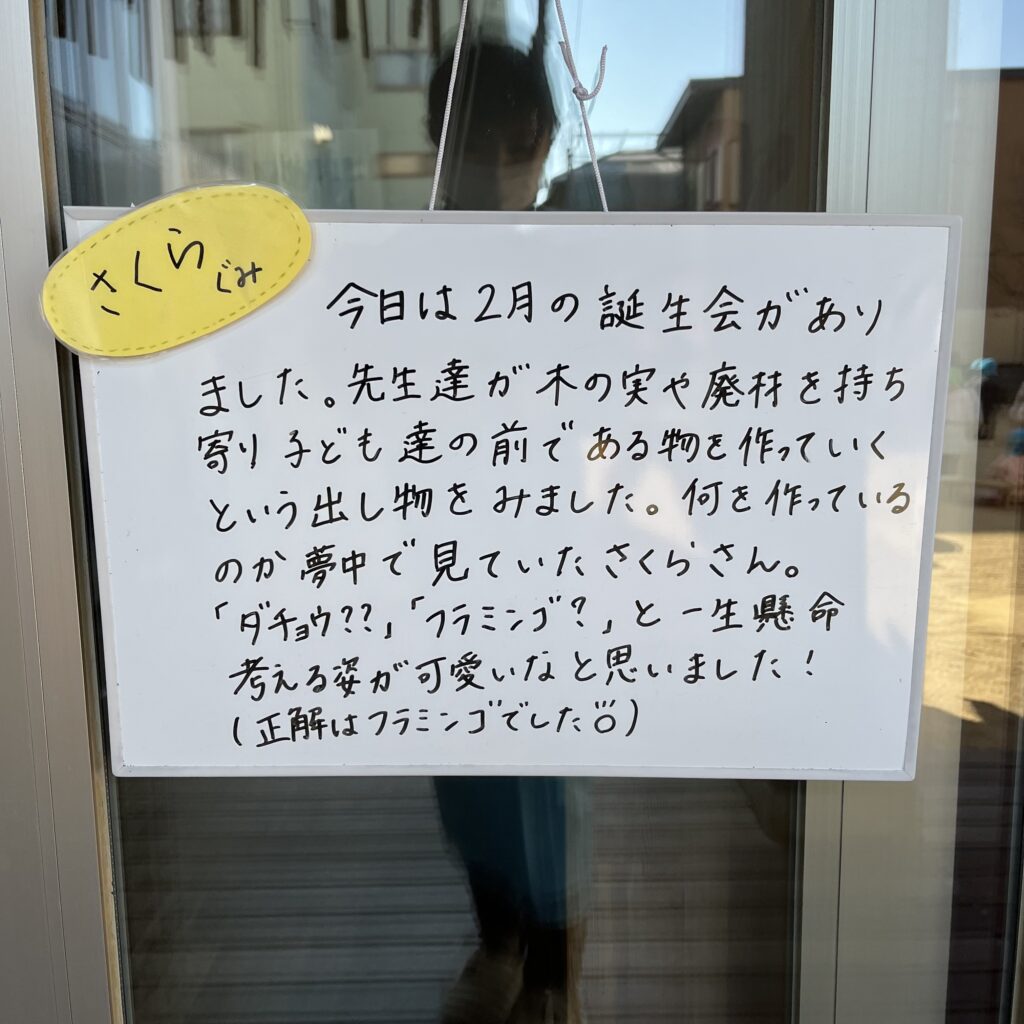 さくらぐみ
今日は2月の誕生会があり
ました。先生達が木の実や廃材を持ち
寄り子ども達の前である物を作っていく
という出し物をみました。何を作っている
のか夢中で見ていたさくらさん。
「ダチョウ??」「フラミンゴ?」と一生懸命
考える姿が可愛いなと思いました!
(正解はフラミンゴでした)